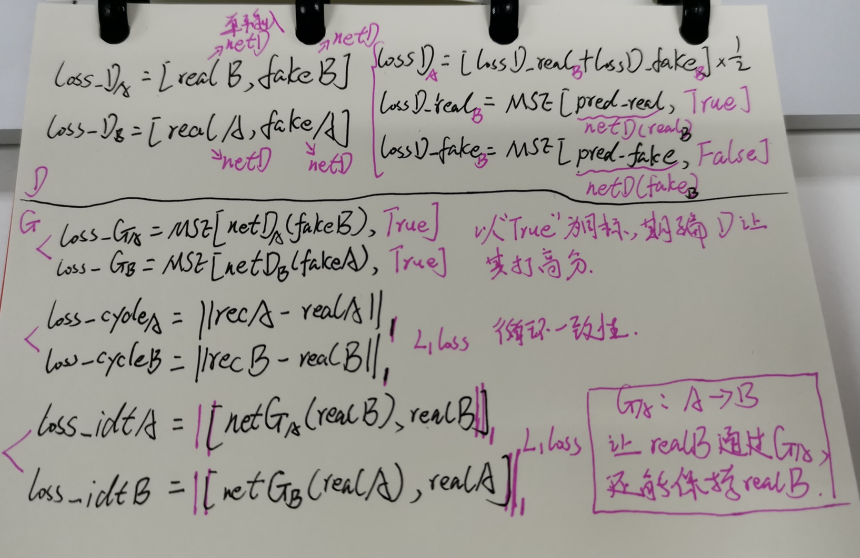 单独输入
netD netD
loss_D_A = [real B, fake B]
loss_D_B = [real A, fake A]
netD netD
loss D_A = [loss D_real_B + loss D_fake_B] × 1/2
loss D_real_B = MSE[pred_real, True]
netD(real_B)
loss D_fake_B = MSE[pred_fake, False]
netD(fake_B)
D
G
loss_G_A = MSE[netD_A(fakeB), True]
loss_G_B = MSE[netD_B(fakeA), True]
以"True"为目标,期骗D让
其打高分.
loss_cycleA = ||recA - realA||₁
loss_cycleB = ||recB - realB||₁
L₁loss 循环一致性.
loss_idtA = ||[netG_A(realB), realB]||₁
loss_idtB = ||[netG_B(realA), realA]||₁
L₁loss
G_A: A→B
让realB通过G_A,
还能保持realB.